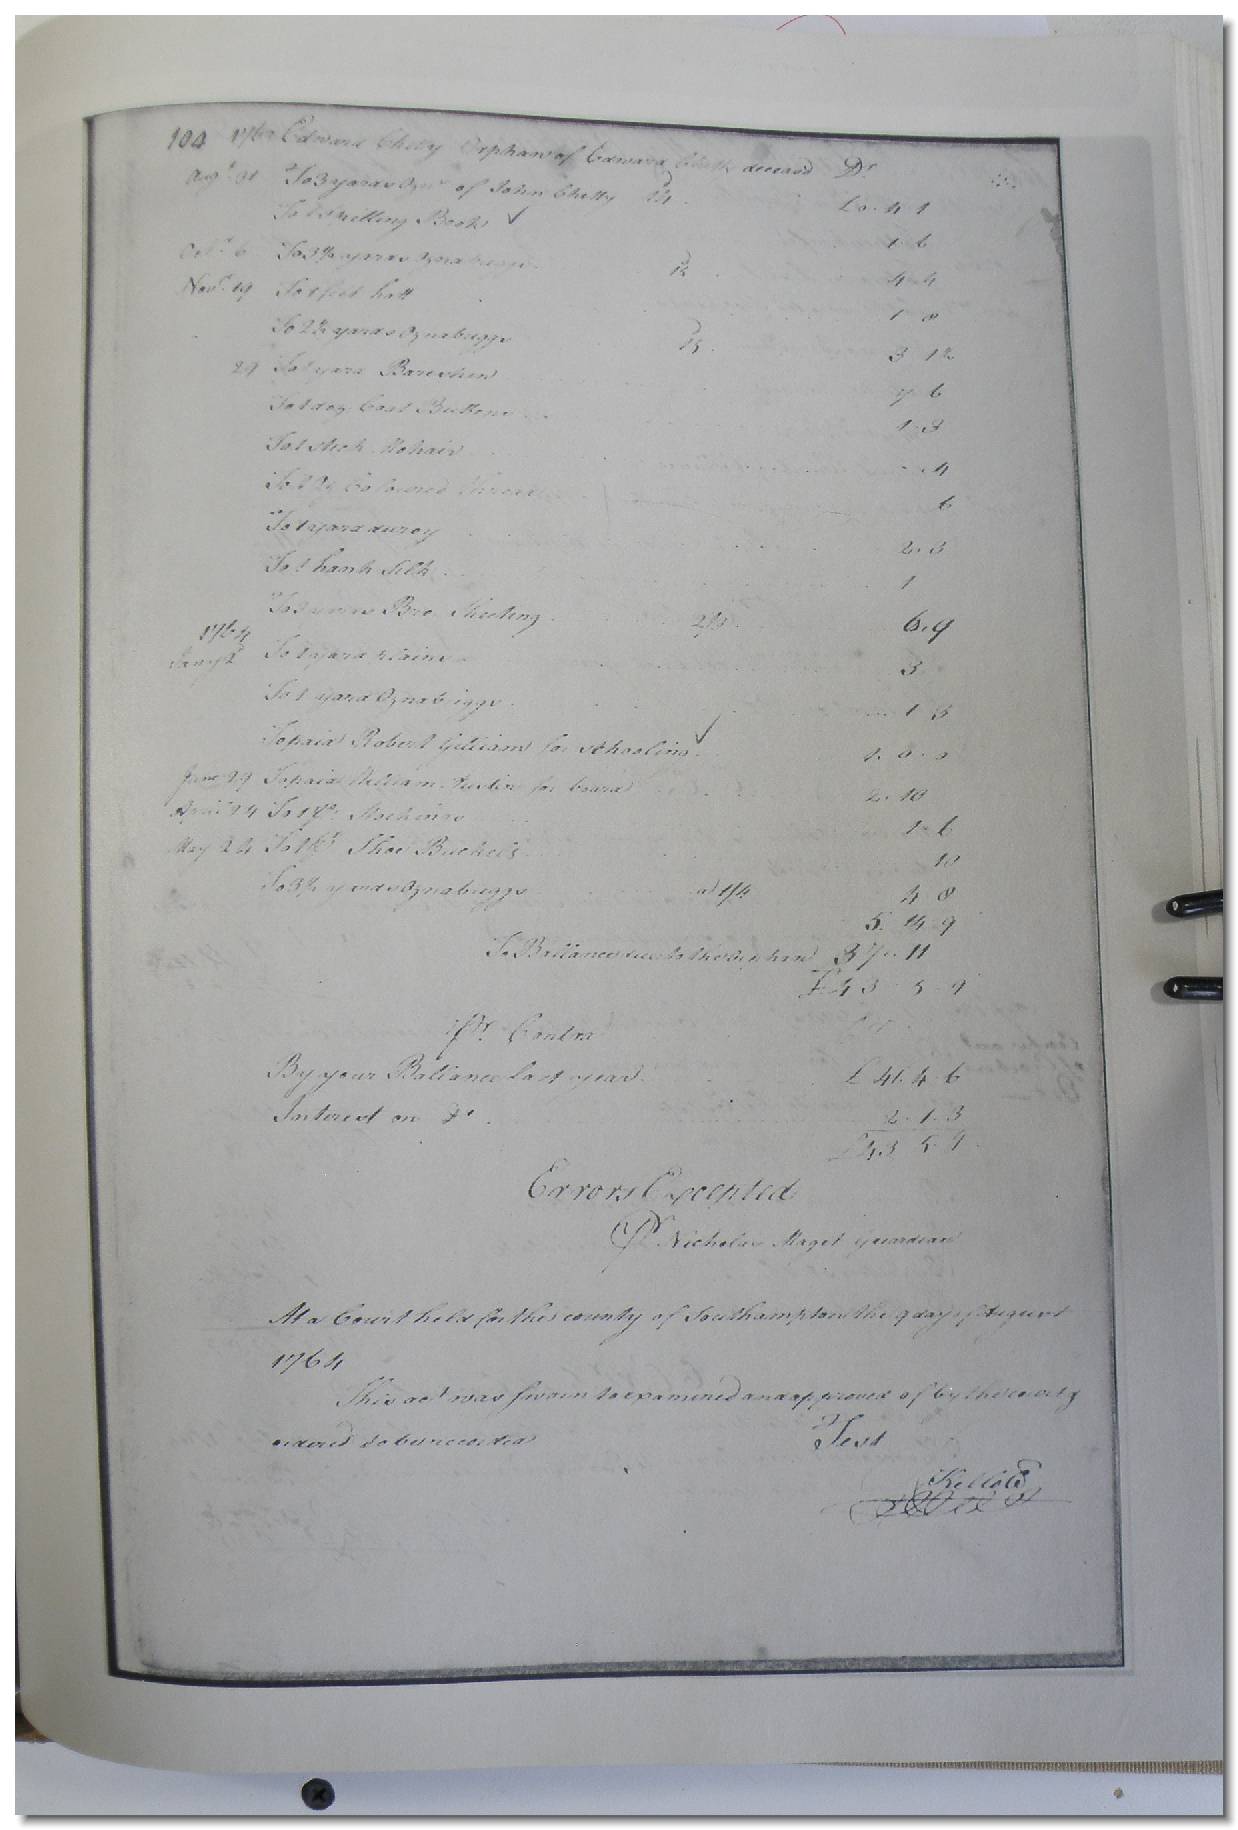 104 Edward Chitty Orphan of Edward deceasd Dr
Augt 31 To 3 yards Oznr of John Chitty £0.4.1
To 1 Spelling Book 1.6
Octr 6 To 3½ yards Oznabriggs 4.4
Novr 19 To 1 felt hatt 1.8
To 2½ yards Oznabuggs 3.1½
29 To 1 yard 7.6
To 1 doz Coat Buttons 1.3
To 1 stick Mohair 4
To Coloured thread 6
To 1 yard duroy 2.3
To 1 hank Silk 1
To 3 yards Bro. Sheeting 2/3 6.9
1764
Jany 2 To 1 yard plains 3
To 1 yard Oznabriggs 1.3
To paid Robert Gilliam for schooling 1.0.0
June 29 To paid William Austin for board 2.10
April 24 To 1 pr Stockings 1.6
May 24 To 1 pr Shoe Buckels 10
To 3½ yards Oznabuggs a 1/4 4.8
5.14.9
To Ballance due to the Orphan 37.11
£43.5.9
Pr Contra
By your Ballance last year £41.4.6
Interest on Do 2.1.3
£43.5.9
Errors Excepted
Pr Nicholas Maget Guardian
At a Court held for the county of Southampton the 9 day of August
1764
This act was sworn to examined and approved of by the court &
ordered to be recorded Test